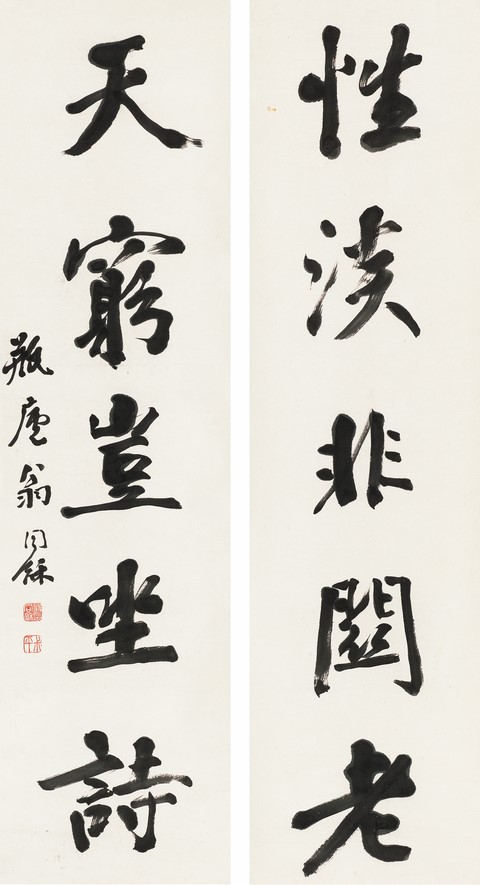 性淡非關老
天窮豈坐詩
瓶廬翁同龢